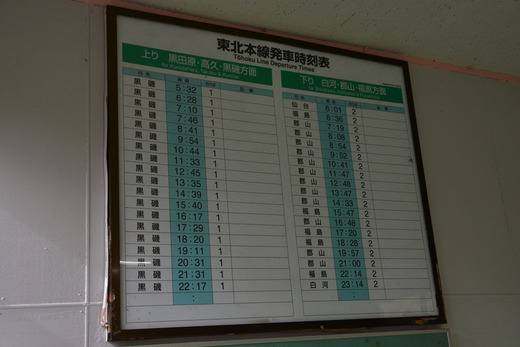 東北本線発車時刻表
Tohoku Line Departure Times
上り 黒田原・高久・黒磯方面
for Kurodahara, Takaku & Kuroiso
黒磯 5:32 1
黒磯 6:28 1
黒磯 7:10 1
黒磯 7:46 1
黒磯 8:41 1
黒磯 9:54 1
黒磯 10:44 1
黒磯 11:33 1
黒磯 12:45 1
黒磯 13:35 1
黒磯 14:39 1
黒磯 15:40 1
黒磯 16:17 1
黒磯 17:29 1
黒磯 18:20 1
黒磯 19:11 1
黒磯 20:31 1
黒磯 21:31 1
黒磯 22:17 1
:
下り 白河・郡山・福島方面
仙台 6:01 2
福島 6:36 2
郡山 7:19 2
郡山 8:08 2
郡山 8:54 2
郡山 9:52 2
郡山 10:41 2
郡山 11:47 2
郡山 12:48 2
郡山 13:47 2
郡山 14:33 2
福島 15:47 2
郡山 16:46 2
福島 17:20 2
福島 18:28 2
郡山 19:57 2
郡山 21:00 2
福島 22:14 2
白河 23:14 2
: